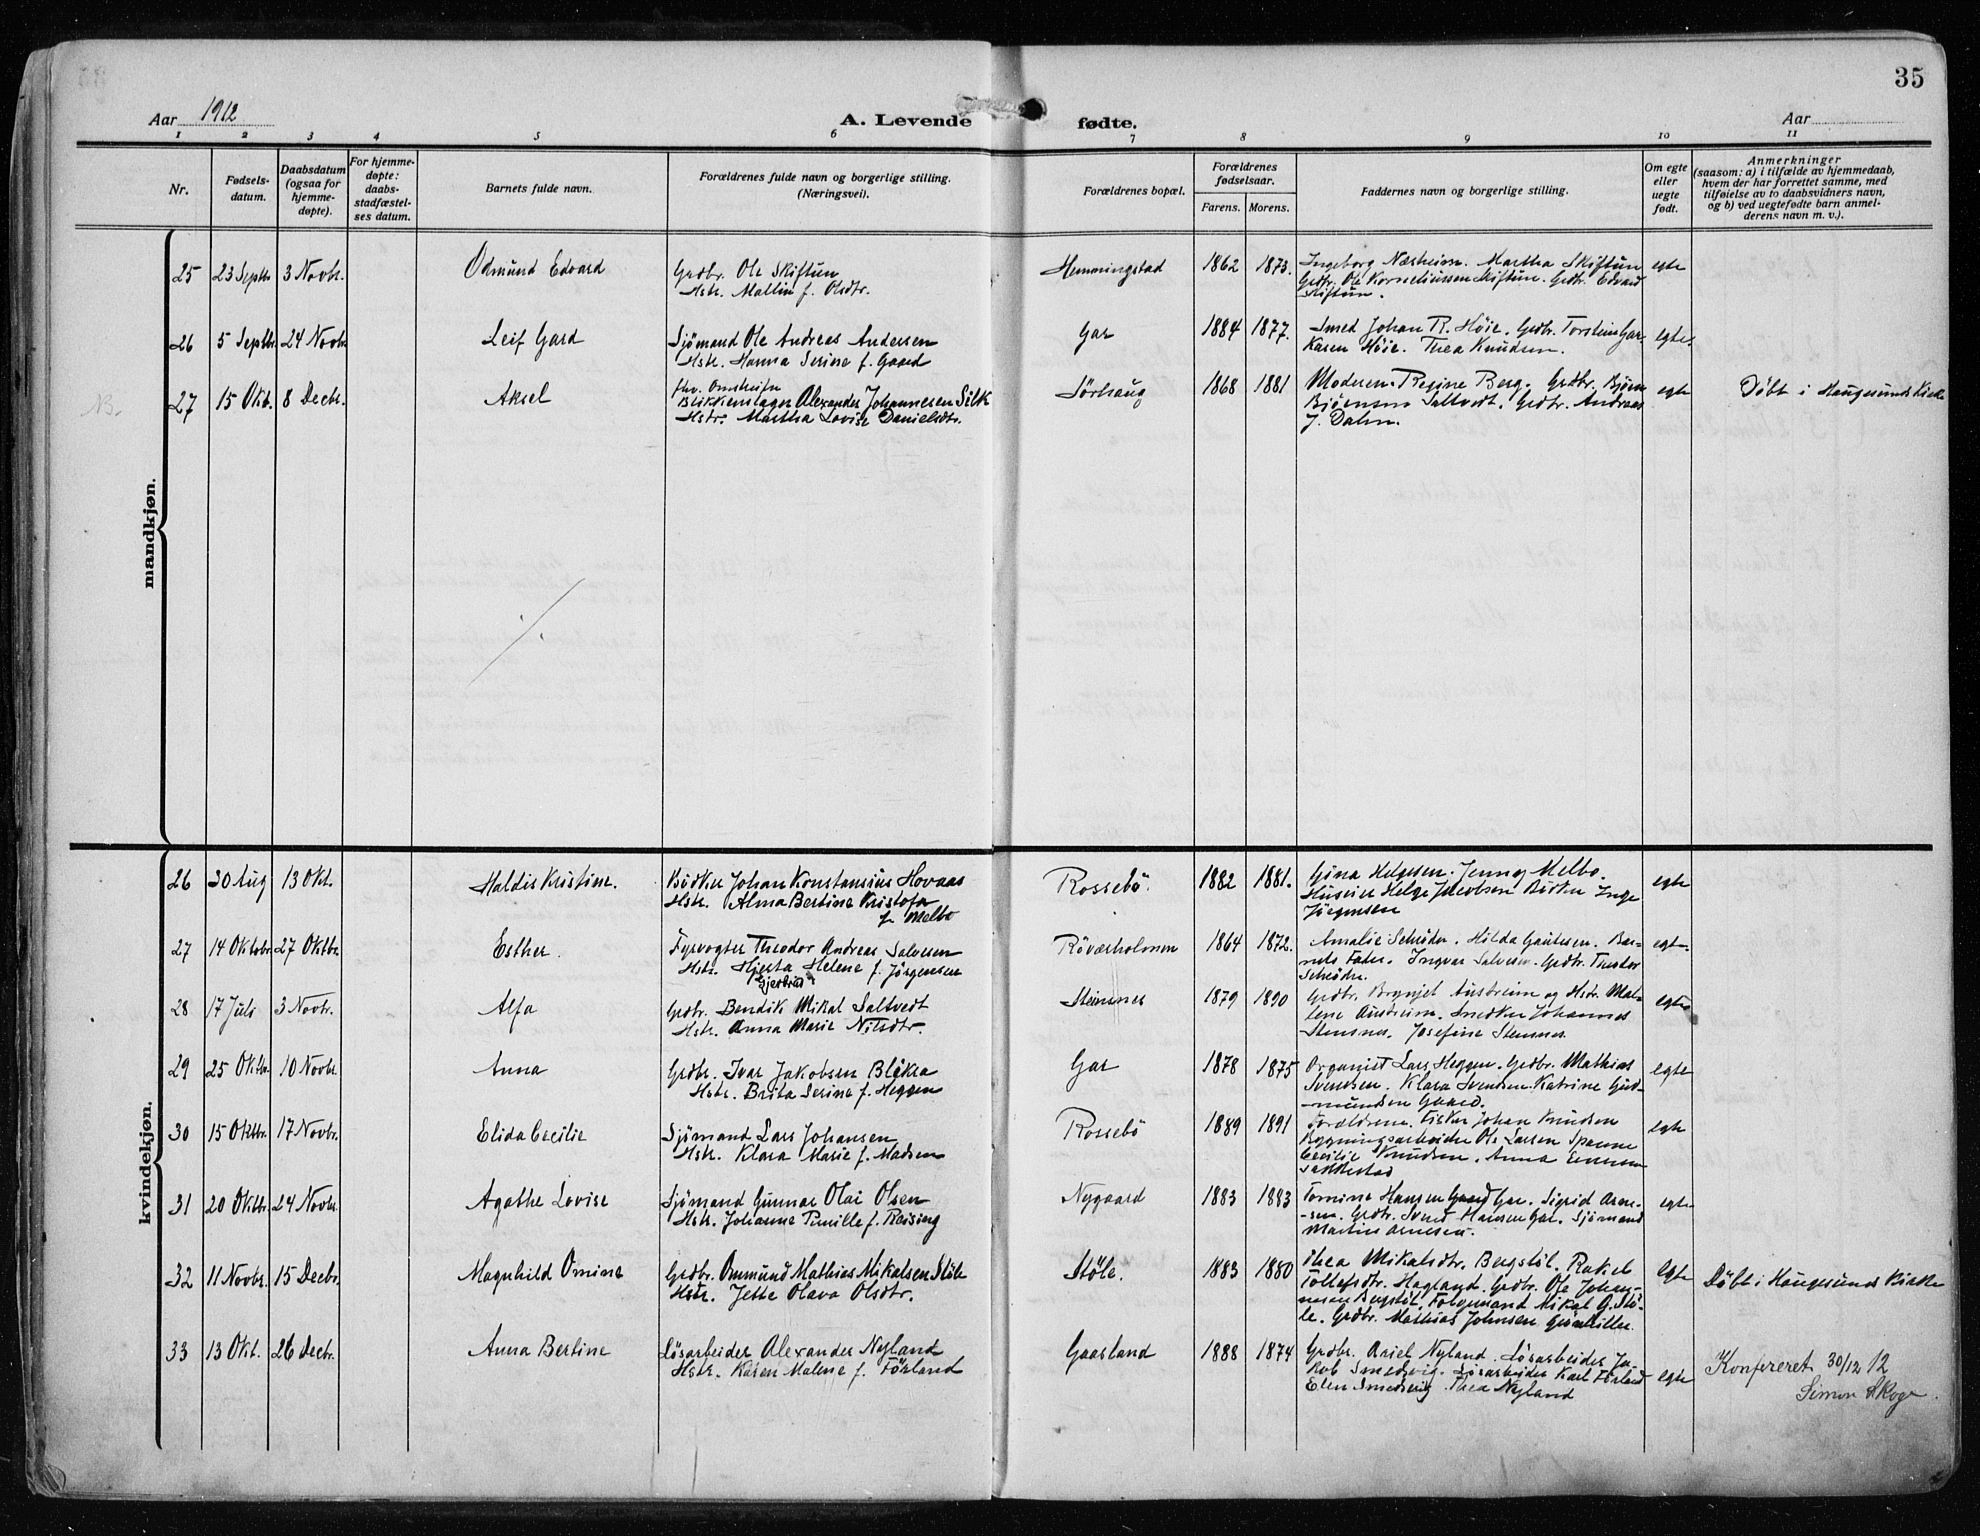 35
Aar 1912
A. Levende fødte.
Aar
1 2 3 4 5 6 7 8 9 10 11
Nr.
Fødsels-
datum.
Daabsdatum
(ogsaa for
hjemme-
døpte).
For hjemme-
døpte:
daabs-
stadfæstel-
ses datum.
Barnets fulde navn.
Forældrenes fulde navn og borgerlige stilling.
(Næringsvei).
Forældrenes bopæl.
Forældrenes
fødselsaar.
Farens. Morens.
Faddernes navn og borgerlige stilling.
Om egte
eller
uegte
født.
Anmerkninger
(saasom: a) i tilfælde av hjemmedaab,
hvem der har forrettet samme, med
tilføielse av to daabsvidners navn,
og b) ved uegtefødte barn anmel-
derens navn m. v.).
mandkjøn.
25 23 Septbr. 3 Novbr. Odmund Edvard
Grdbr. Ole Skiftun
Hstr. Mallin f. Olsdtr.
Hemmingstad 1862 1873.
Ingeborg Næsheim. Martha Skiftun
Grdbr. Ole Korneliussen Skiftun. Grdbr. Edvard
Skiftun.
egte
26 5 Septbr. 24 Novbr. Leif Gard
Sjömand Ole Andreas Andersen
Hstr. Hanna Serine f. Gaard
Gar 1884 1877.
Smed Johan R. Höie. Grdbr. Torstein Gar.
Karen Höie. Thea Knudsen.
egte.
NB. 27 15 Okt. 8 Decbr. Aksel
Blikkenslager Alexander Johannesen Silk
Hstr. Martha Lovise Danielsdtr.
Sörhaug 1868 1881
Moderen. Regine Berg. Grdbr. Björn
Björnsen Saltvedt. Grdbr. Andreas
J. Dahn.
egte
Döbt i Haugesunds Kirke
kvindekjøn.
26 30 Aug 13 Okt. Haldis Kristine.
Bödker Johan Konstansius Hovaas
Hstr. Alma Bertine Kristofa
f. Melbo
Rossebö. 1882 1881.
Gina Helgesen. Jenny Melbo.
Huseier Helge Jacobsen Bödker Inge
Jörgensen
egte
27 14 Oktobr. 27 Oktbr. Esther.
Fyrvogter Theodor Andreas Salvesen
Hstr. Hjerta Helene f. Jørgensen
Gjertrud
Röværholmen 1864 1872.
Amalie Schröder. Hilda Gautesen. Bar-
nets Fader. Ingvar Salvesen. Grdbr. Theodor
Schröder.
egte.
28 17 Juli 3 Novbr. Alfa
Grdbr. Bendik Mikal Saltvedt
Hstr. Anna Marie Nilsdtr.
Steinsnes 1879 1890
Grdbr. Brynjel Austreim og Hstr. Mal-
lene Austreim. Snedker Johannes
Stensnes. Josefine Stensnes.
egte
29 25 Oktbr. 10 Novbr. Anna
Grdbr. Ivar Jakobsen Blikra
Hstr. Brita Serine f. Heggen
Gar 1878 1875
Organist Lars Heggen. Grdbr. Mathias
Svendsen. Klara Svendsen. Katrine Gud-
-mundsen Gaard.
egte
30 15 Oktbr. 17 Novbr. Elida Cecilie
Sjömand Lars Johansen
Hstr. Klara Marie f. Madsen
Rossebö 1889 1891
Forældrene. Fisker Johan Knudsen
Bygningsarbeider Ole Larsen Spanne
Cecilie Knudsen. Anna
egte
31 20 Oktbr. 24 Novbr. Agathe Lovise
Sjömand Gunnar Olai Olsen
Hstr. Johanne Pernille f. Reising
Nygaard 1883 1883
Tomine Hansen Gar. Sigrid Arne-
-sen. Grdbr. Svend Hansen Gar. Sjömand
Martin Arnesen.
egte
32 11 Novbr. 15 Decbr. Magnhild Omine
Grdbr. Ommund Mathias Mikalsen Stöle
Hstr. Jette Olava Olsdtr.
Stöle. 1883 1880
Thea Mikalsdtr. Bergstöl. Rakel
Tollefsdtr. Hagland. Grdbr. Ole Johan-
nesen Bergstöl. Folgemand Mikal G. Stö-
le. Grdbr. Mathias Johnsen
egte
Döbt i Haugesunds Kirke
33 13 Okt. 26 Decbr. Anna Bertine
Lösarbeider Alexander Nyland
Hstr. Karen Malene f. Förland
Gaasland 1888 1874
Grdbr. Ariel Nyland. Lösarbeider Ja-
kob Smedsvig. Lösarbeider Karl Förland
Elen Smedsvig Thea Nyland
egte
Konfereret 30/12 12
Simon Skoge.